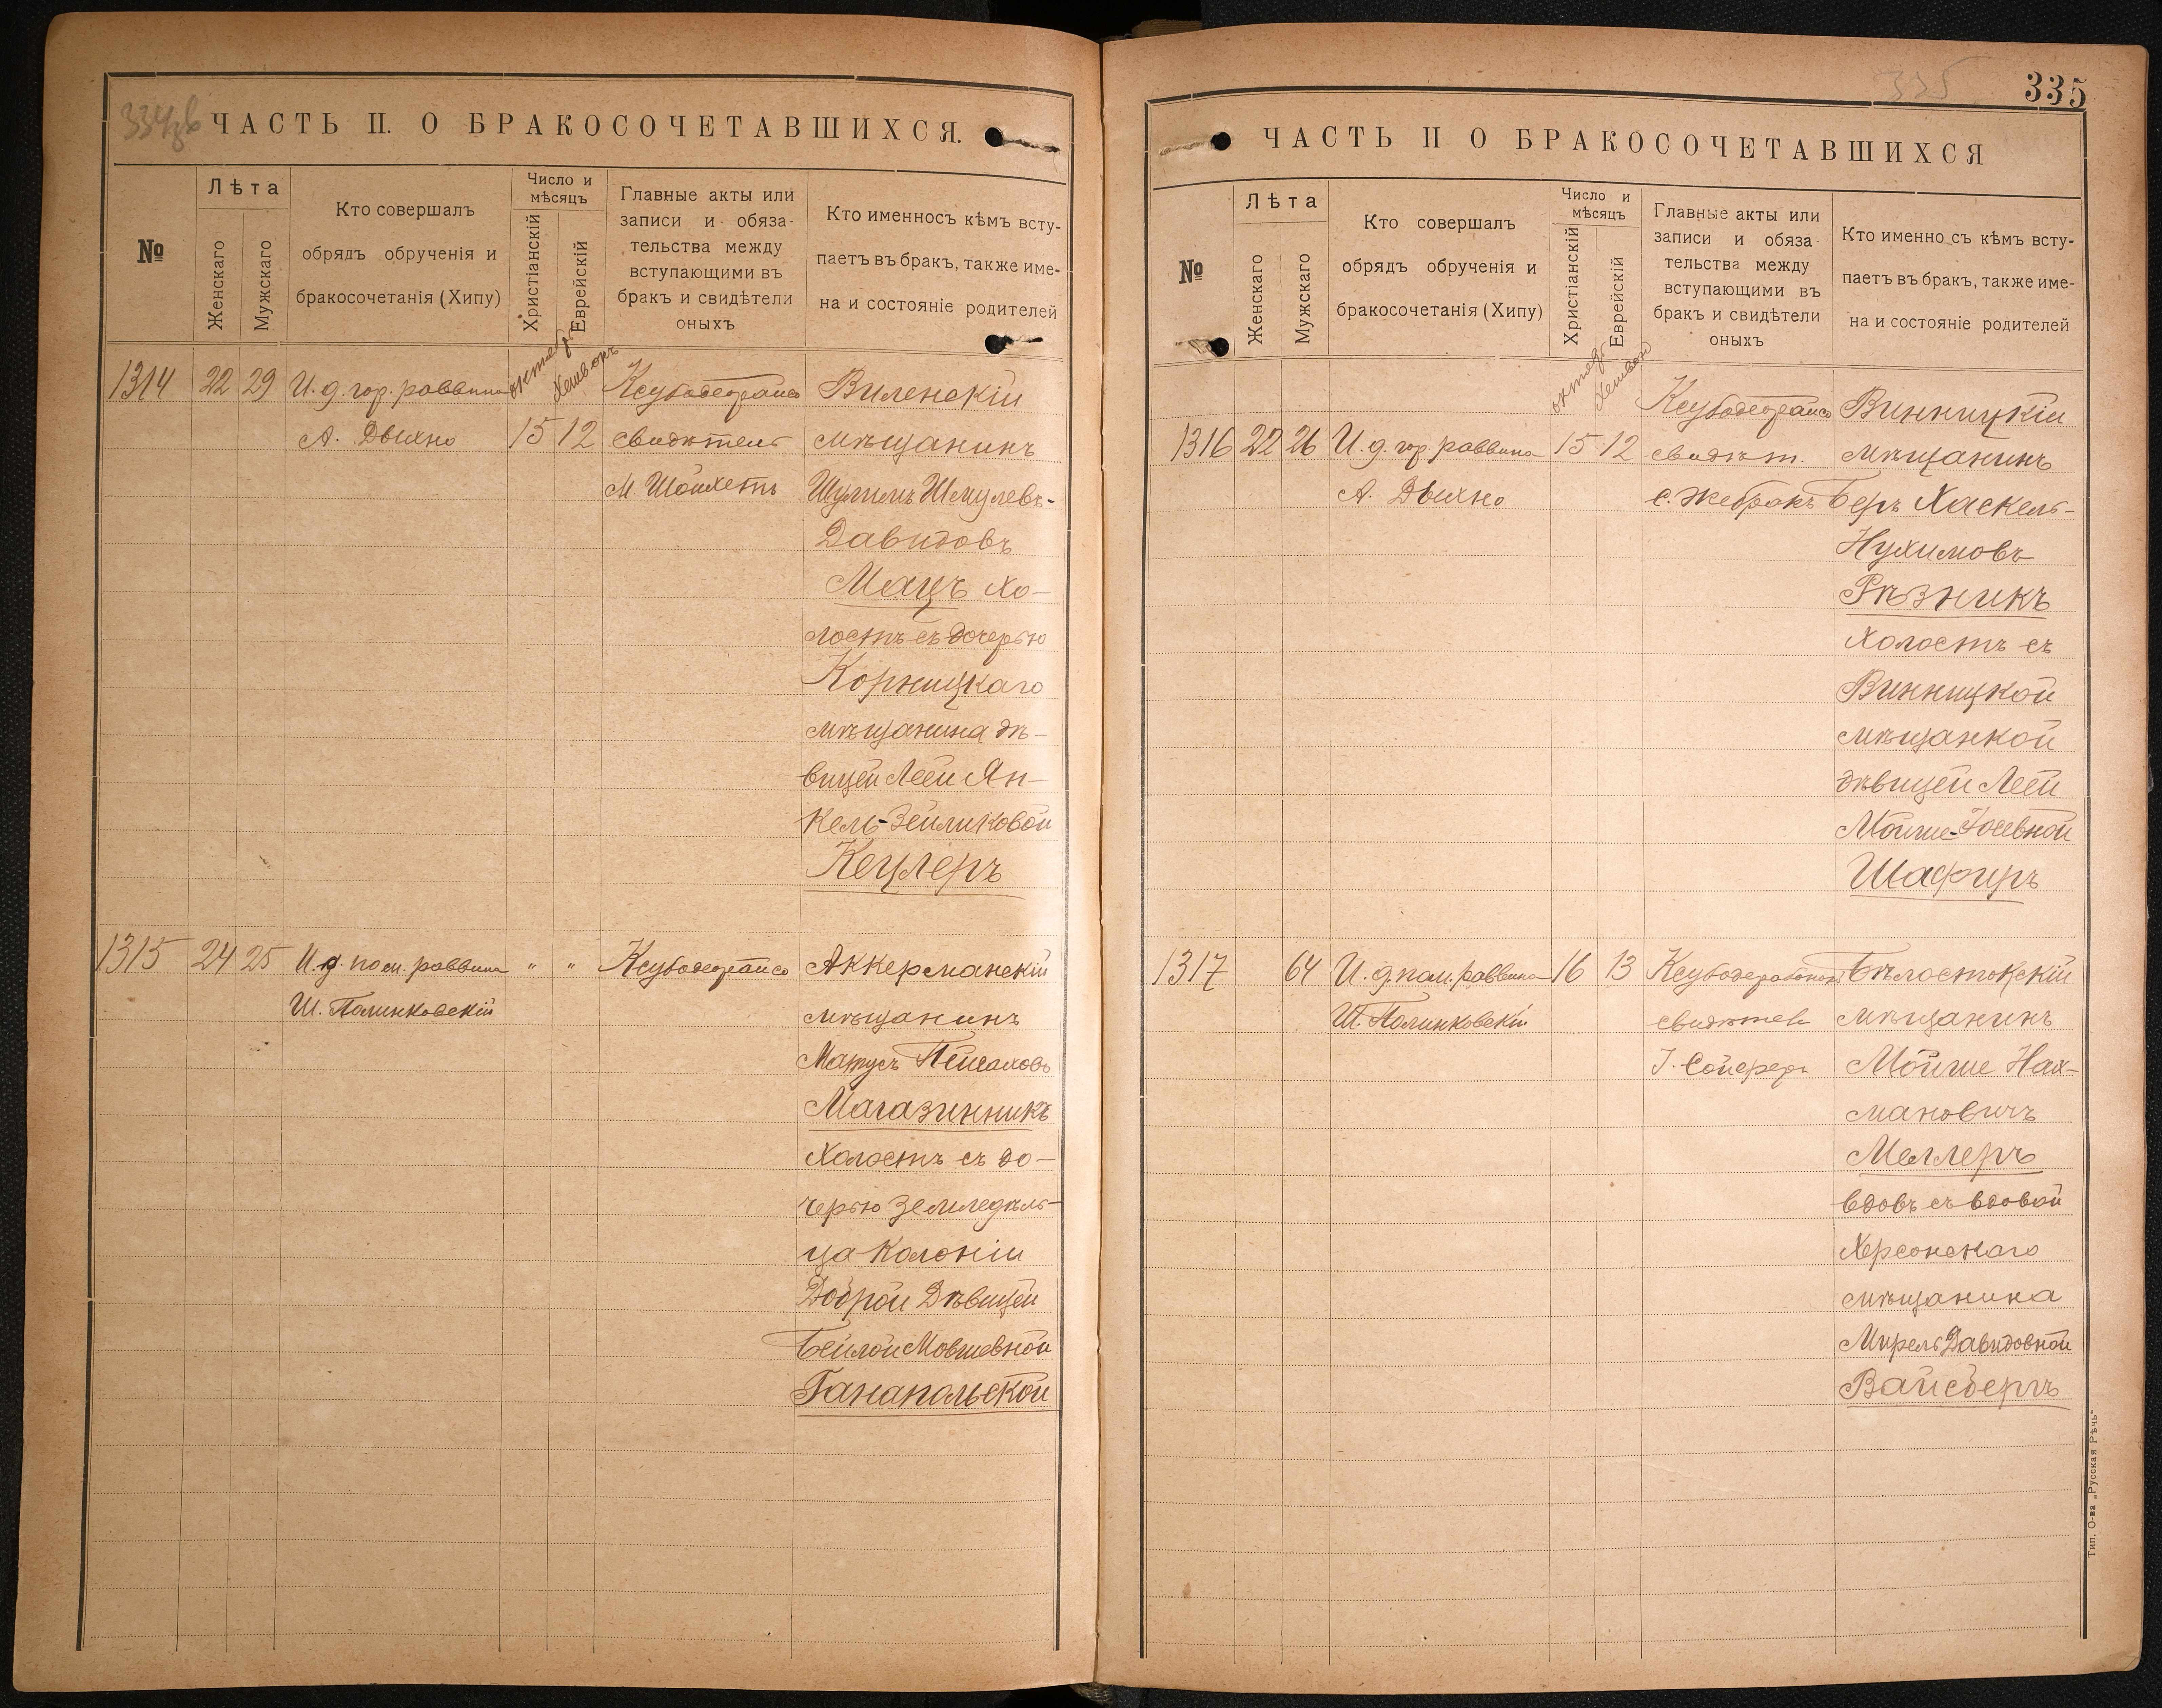 ЧАСТЬ II. О БРАКОСОЧЕТАВШИХСЯ.
№
Лѣта
Женскаго
Мужскаго
Кто совершалъ
обрядъ обрученія и
бракосочетанія (Хипу)
Число и
мѣсяцъ
Христіанскій
Еврейскій
Главные акты или
записи и обяза-
тельства между
вступающими въ
бракъ и свидѣтели
оныхъ
Кто именносъ кѣмъ всту-
паетъ въ бракъ, также име-
на и состояніе родителей
1314 22 29 И. д. гор. раввина
А. Дыхно
октябр
Хешвонъ
15 12
свидѣтель
М. Шойхетъ
Виленскій
мѣщанинъ
Шулимъ Шмулевъ-
Давидовъ
Мацъ хо-
лостъ съ дочерью
Корницкаго
мѣщанина дѣ-
вицей Леей Ян-
кель-Зейликовой
Кецлеръ
1315 24 25 И. д. пом. раввина " "
Ш. Полинковскій
Аккерманскій
мѣщанинъ
Матусъ Пейсаховъ
Магазинникъ
Холостъ съ до-
черью земледѣль-
ца Колоніи
Доброй Дѣвицей
Бейлой Мовшевной
Ганапольской
335
335
ЧАСТЬ II О БРАКОСОЧЕТАВШИХСЯ
№
Лѣта
Женскаго
Мужскаго
Кто совершалъ
обрядъ обрученія и
бракосочетанія (Хипу)
Число и
мѣсяцъ
Христіанскій
Еврейскій
Главные акты или
записи и обяза
тельства между
вступающими въ
бракъ и свидѣтели
оныхъ
Кто именно съ кѣмъ всту-
паетъ въ бракъ, также име-
на и состояніе родителей
1316 22 26 И. д. гор. раввина
А. Дыхно
октябр
Хешвон
15 12
свидѣт.
С. Жебракъ
Винницкій
мѣщанинъ
Беръ Хаскель-
Нухимовъ
Рѣзникъ
Холостъ съ
Винницкой
мѣщанкой
дѣвицей Леей
Мойше-Іосевной
Шафиръ
1317 64 И. д. пом. раввина 16 13
Ш. Полинковскій
свидѣтель
І. Сойферъ
Бѣлостокскій
мѣщанинъ
Мойше Нах-
мановичъ
Меллеръ
вдовъ съ вдовой
Херсонскаго
мѣщанина
Мирель Давидовной
Вайсбергъ
Тип. О-ва „Русская Рѣчь"